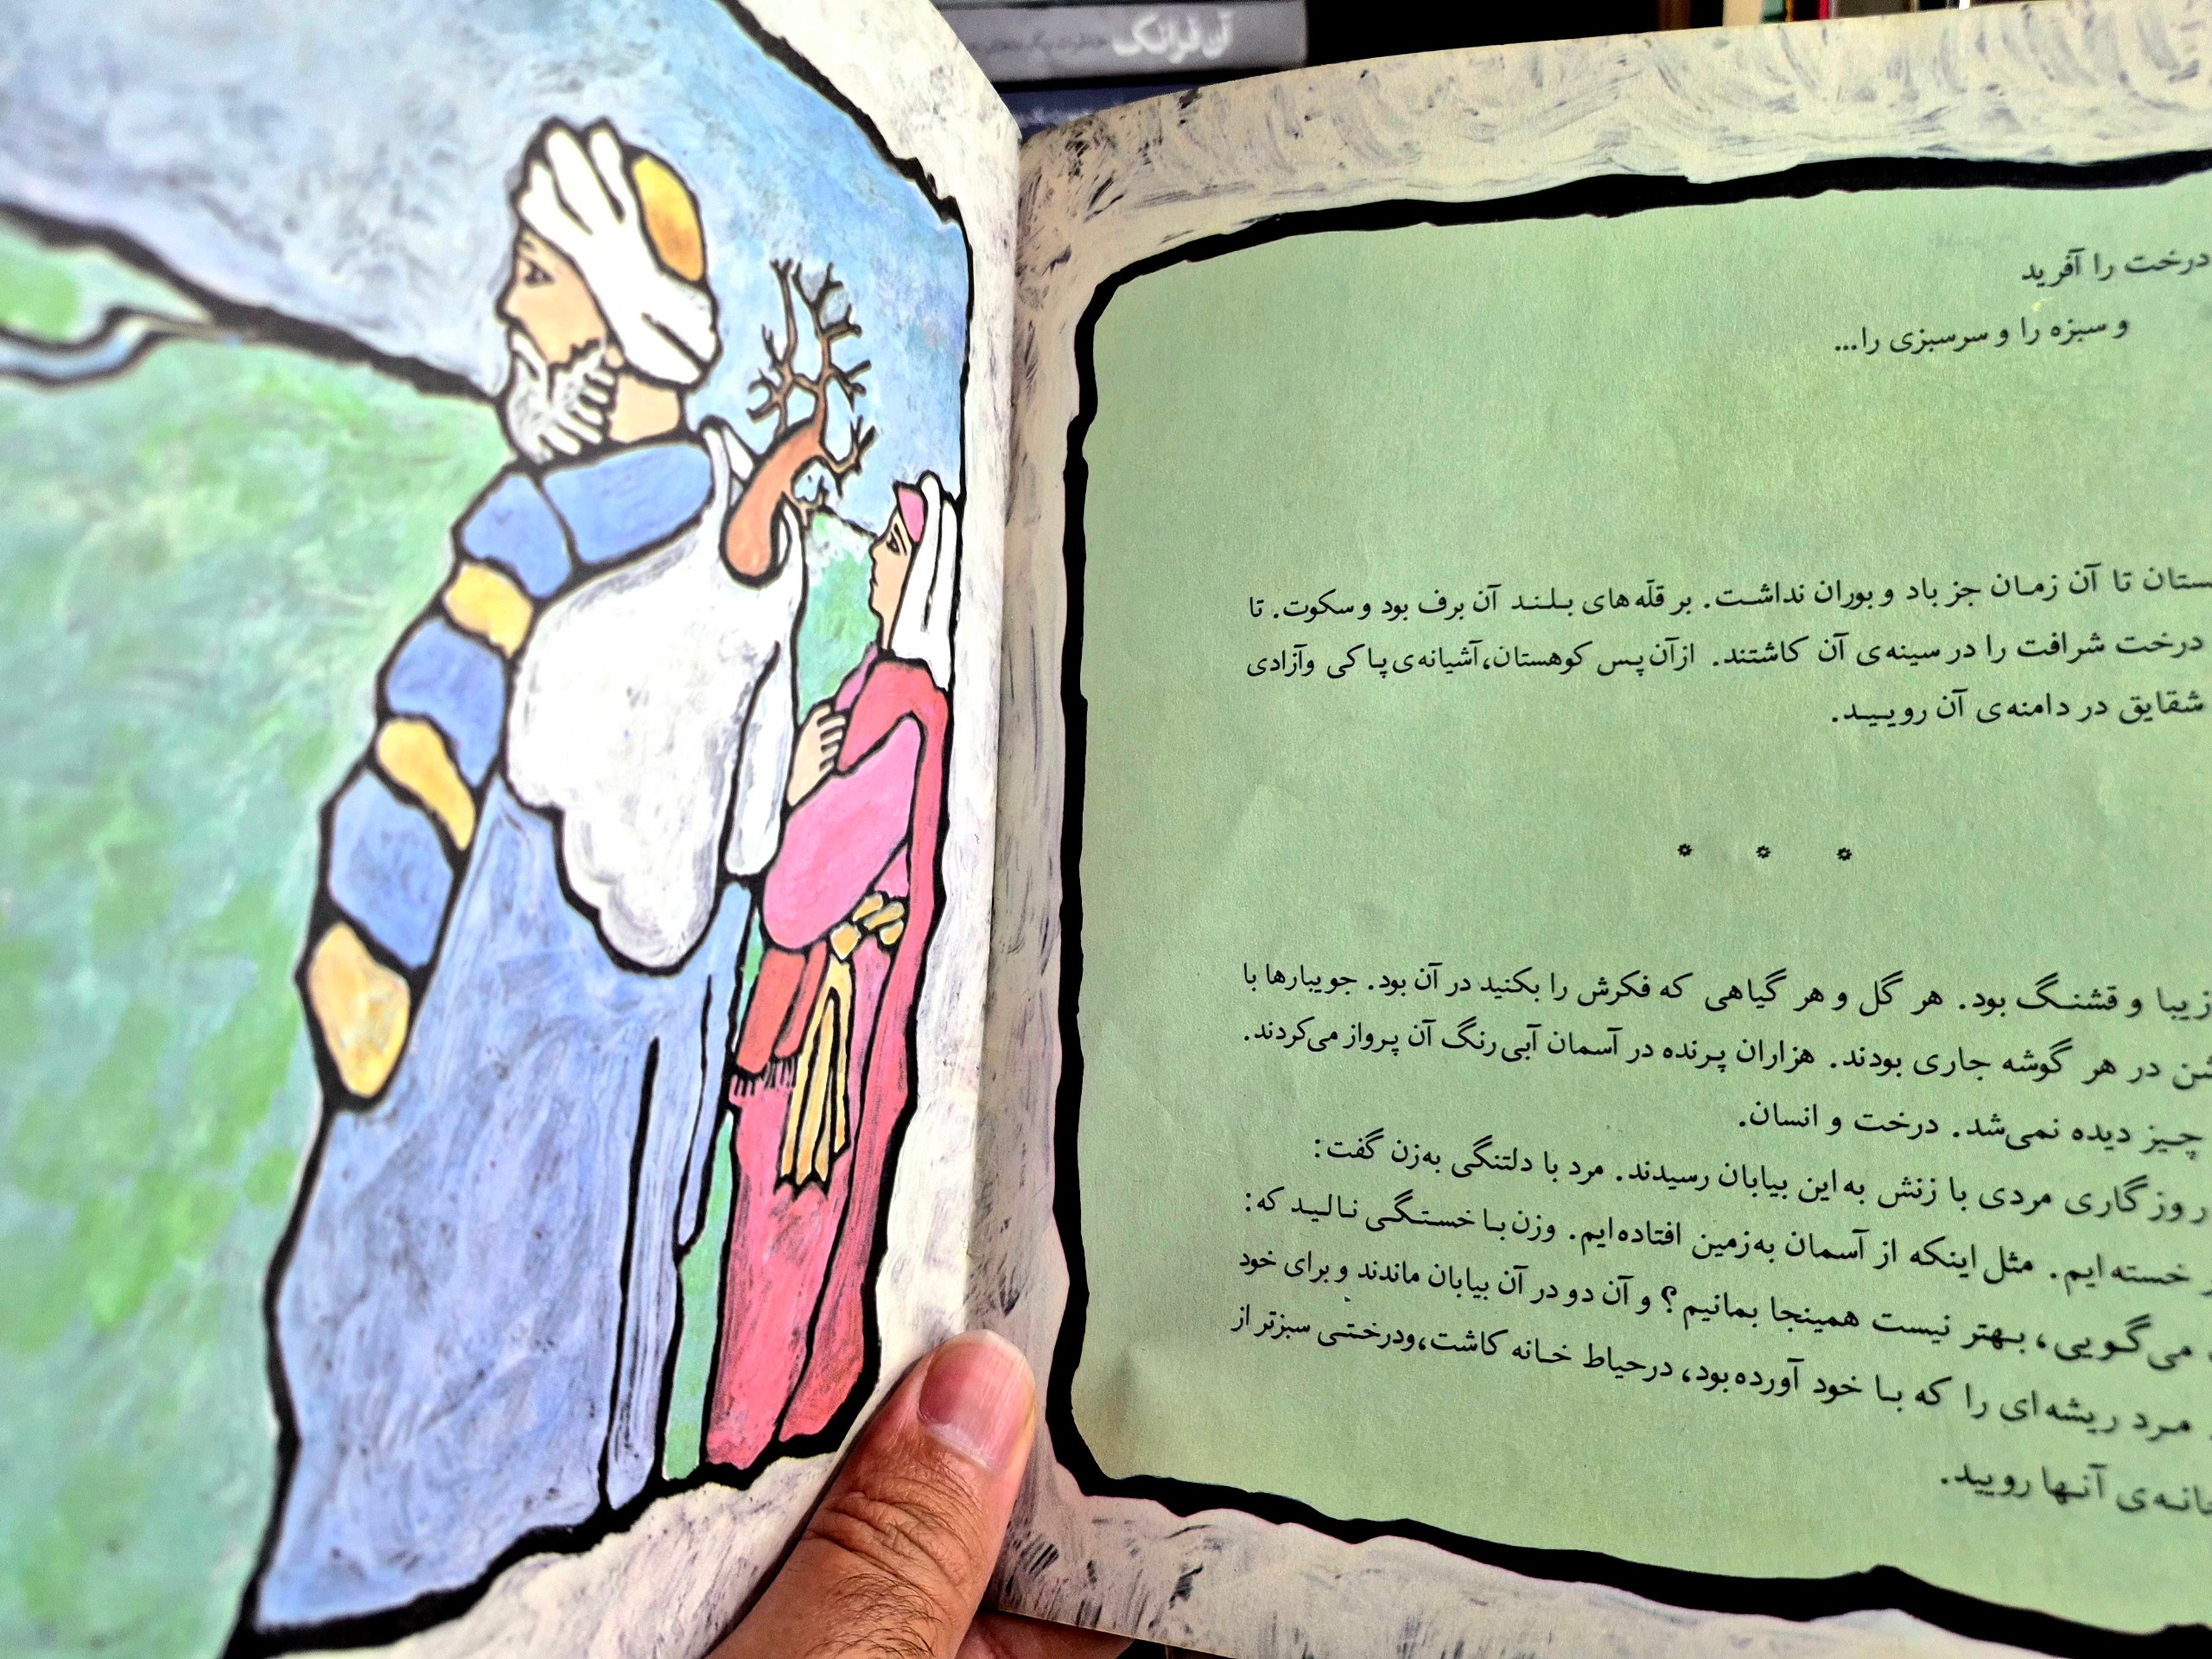 آن فرانک
درخت را آفرید
و سبزه را و سرسبزی را...
تا آن زمان جز باد و بوران نداشت. بر قلّه‌های بلند آن برف بود و سکوت. تا
درخت شرافت را در سینه‌ی آن کاشتند. از آن پس کوهستان، آشیانه‌ی پاکی و آزادی
شقایق در دامنه‌ی آن رویید.
* * *
زیبا و قشنگ بود. هر گل و هر گیاهی که فکرش را بکنید در آن بود. جویبارها با
در هر گوشه جاری بودند. هزاران پرنده در آسمان آبی رنگ آن پرواز می‌کردند.
چیز دیده نمی‌شد. درخت و انسان.
روزگاری مردی با زنش به این بیابان رسیدند. مرد با دلتنگی به‌زن گفت:
خسته‌ایم. مثل اینکه از آسمان به‌زمین افتاده‌ایم. و زن با خستگی نالید که:
می‌گویی، بهتر نیست همینجا بمانیم؟ و آن دو در آن بیابان ماندند و برای خود
مرد ریشه‌ای را که با خود آورده بود، در حیاط خانه کاشت، و درختی سبزتر از
آنها رویید.